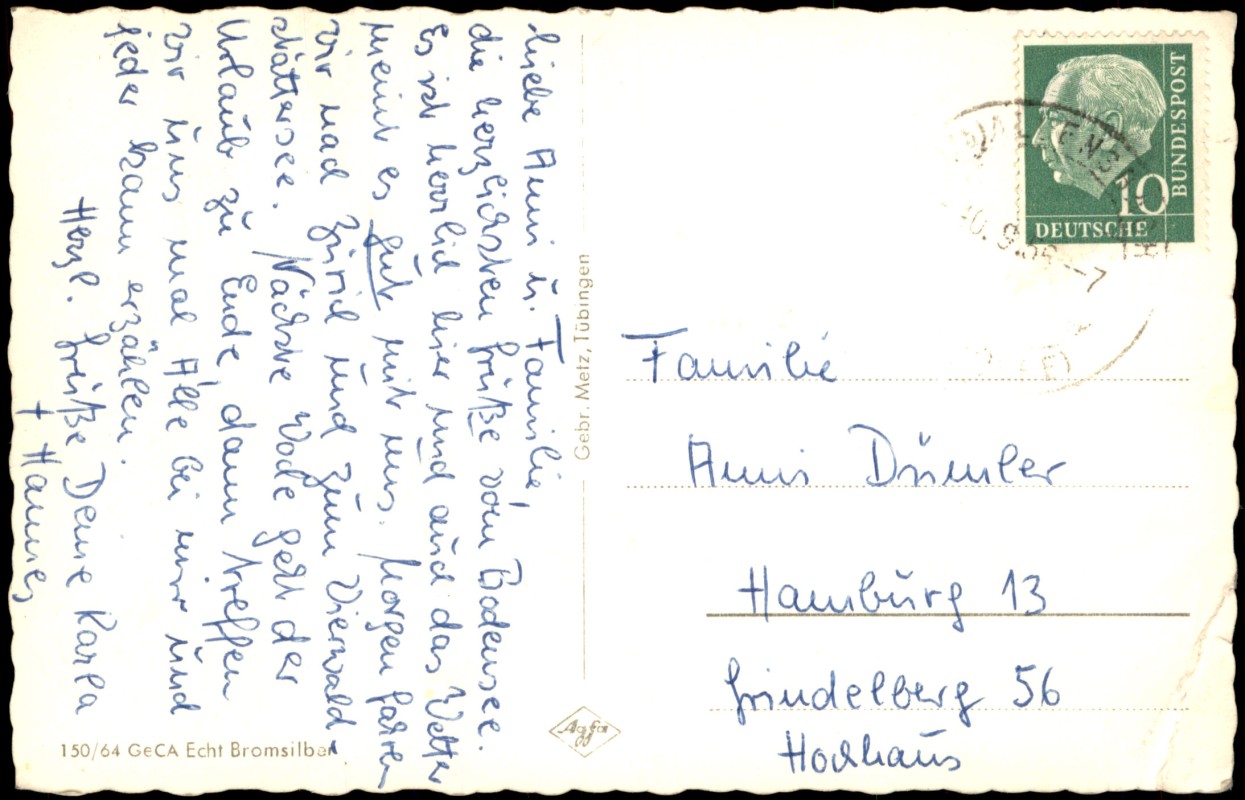 Liebe Anni u. Familie,
die herzlichsten Grüße vom Bodensee.
Es ist herrlich hier und auch das Wetter
meint es gut mit uns. Morgen fahren
wir nach Zürich und zum Vierwald-
stättersee. Nächste Woche geht der
Urlaub zu Ende, dann treffen
wir uns mal Alle bei mir und
jeder kann erzählen.
Herzl. Grüße Deine Karla
+ Hannes
150/64 GeCA Echt Bromsilber
Gebr. Metz, Tübingen
Agfa
BUNDESPOST
10
DEUTSCHE
Familie
Anni Dümler
Hamburg 13
Grindelberg 56
Hochhaus